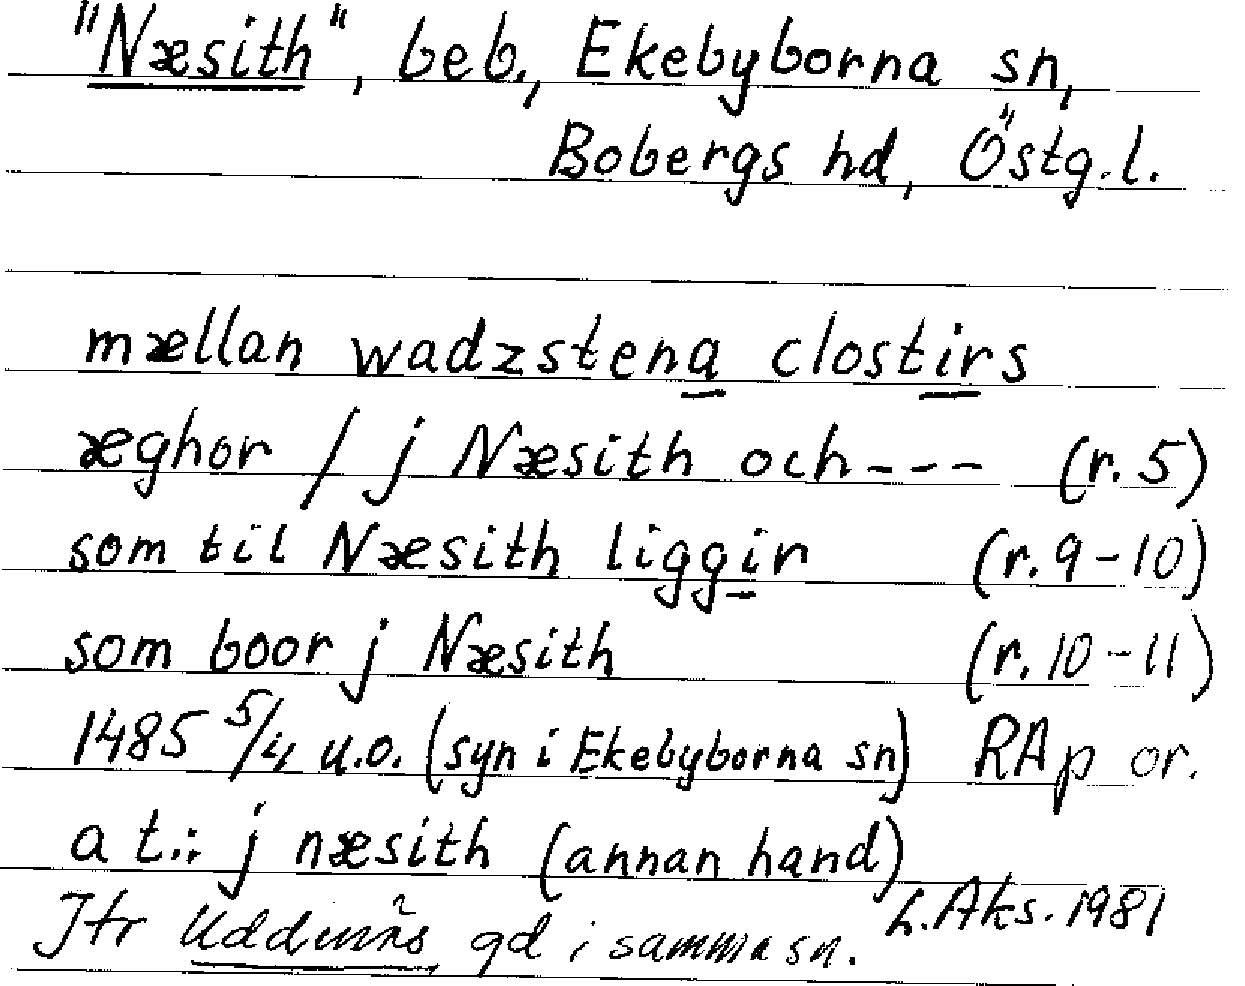 "Næsith", beb., Ekebyborna sn,
Bobergs hd, Östg.l.
mællan wadzstena clostirs
æghor / j Næsith och --- (r. 5)
som til Næsith liggir (r. 9-10)
som boor j Næsith (r. 10-11)
1485 5/4 u.o. (syn i Ekebyborna sn) RAp or.
a t.: j næsith (annan hand)
L. Aks. 1981
Jfr Uddnäs, gd i samma sn.